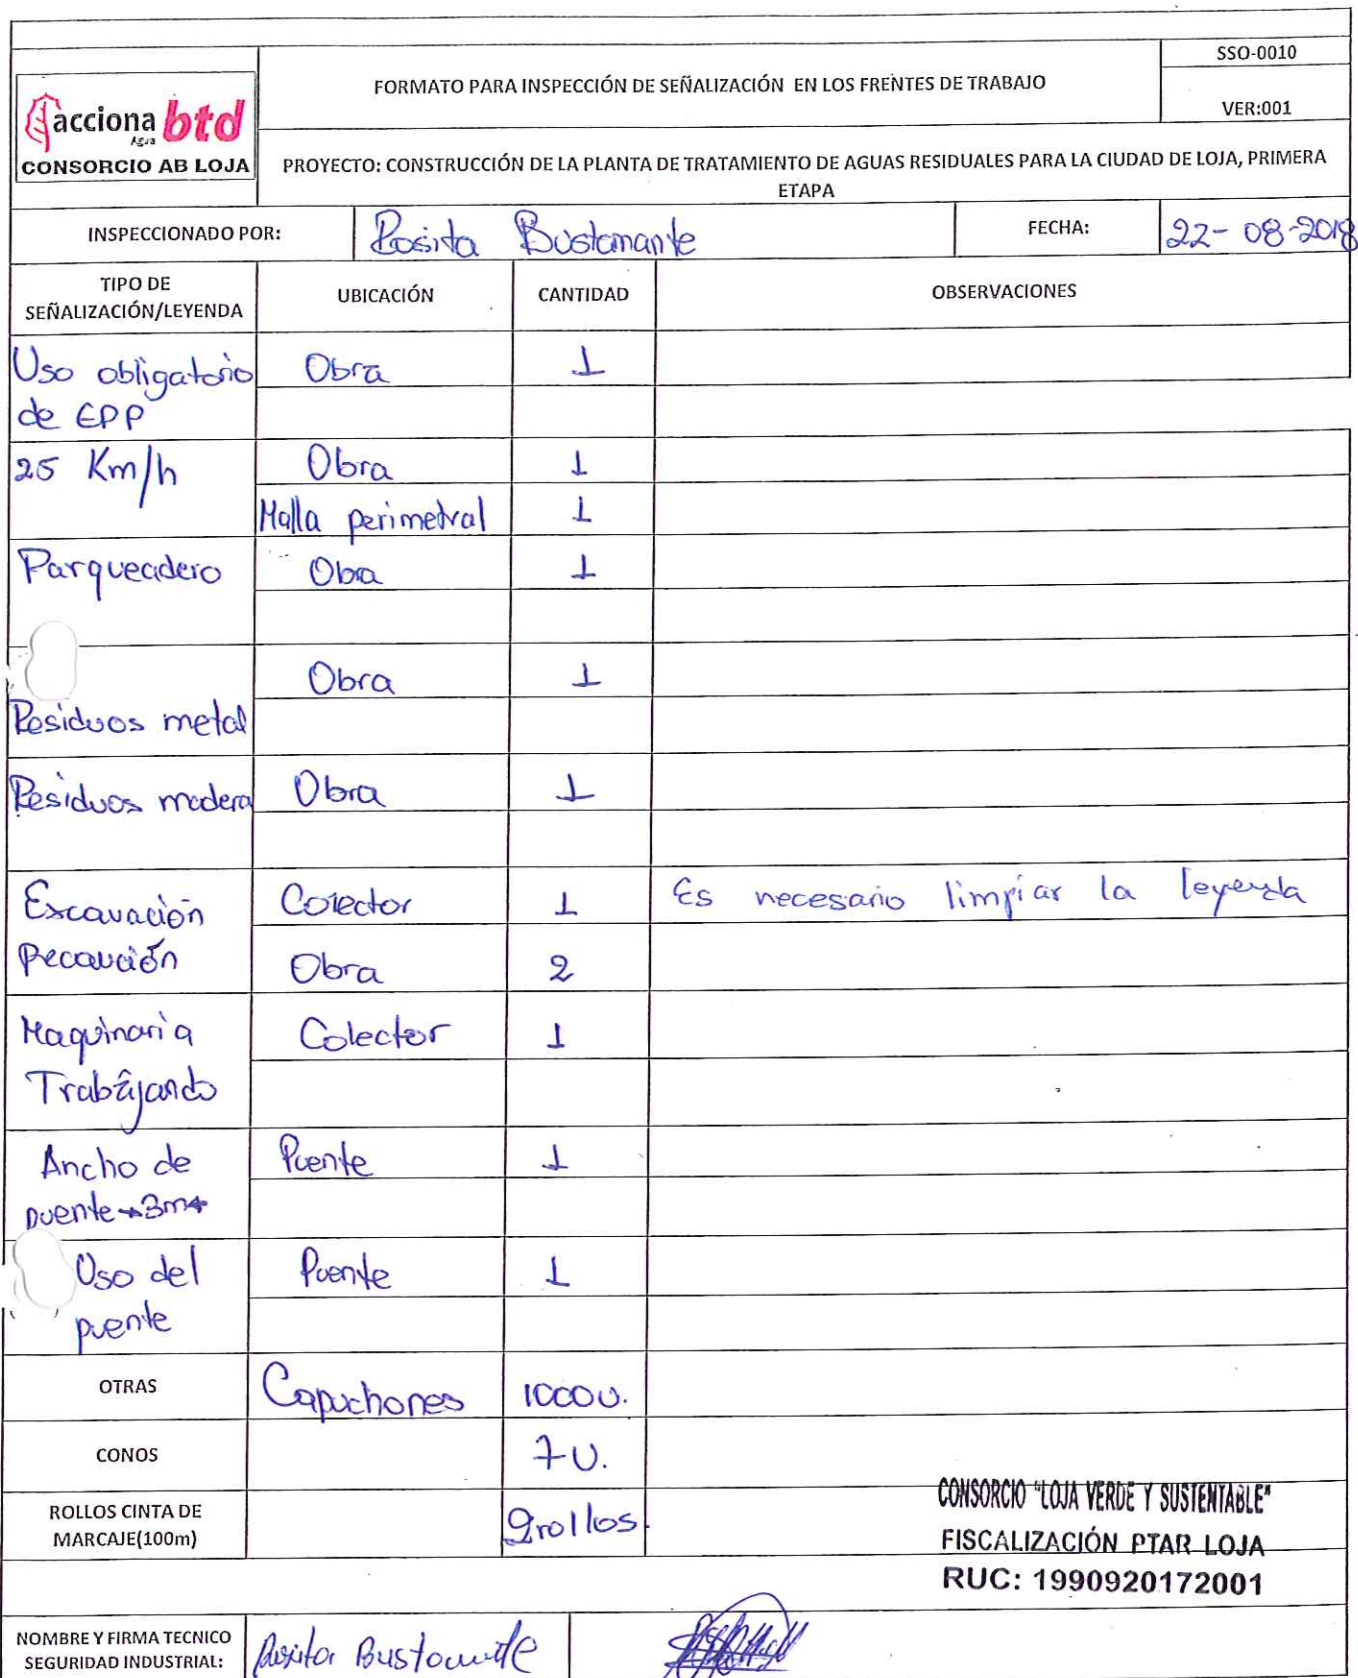 SSO-0010
FORMATO PARA INSPECCIÓN DE SEÑALIZACIÓN EN LOS FRENTES DE TRABAJO
VER:001
acciona btd
Agua
CONSORCIO AB LOJA
PROYECTO: CONSTRUCCIÓN DE LA PLANTA DE TRATAMIENTO DE AGUAS RESIDUALES PARA LA CIUDAD DE LOJA, PRIMERA
ETAPA
INSPECCIONADO POR: Rosita Bustamante FECHA: 22-08-2018
TIPO DE
SEÑALIZACIÓN/LEYENDA UBICACIÓN CANTIDAD OBSERVACIONES
Uso obligatorio Obra 1
de EPP
25 Km/h Obra 1
Malla perimetral 1
Parqueadero Obra 1
Obra 1
Residuos metal
Residuos madera Obra 1
Excavación Colector 1 Es necesario limpiar la leyenda
Precaución Obra 2
Maquinaria Colector 1
Trabajando
Ancho de Puente 1
puente 3m
Uso del Puente 1
puente
OTRAS Capuchones 1000 U.
CONOS 7 U.
ROLLOS CINTA DE
MARCAJE(100m) 2 rollos
CONSORCIO "LOJA VERDE Y SUSTENTABLE"
FISCALIZACIÓN PTAR LOJA
RUC: 1990920172001
NOMBRE Y FIRMA TECNICO
SEGURIDAD INDUSTRIAL: Rosita Bustamante